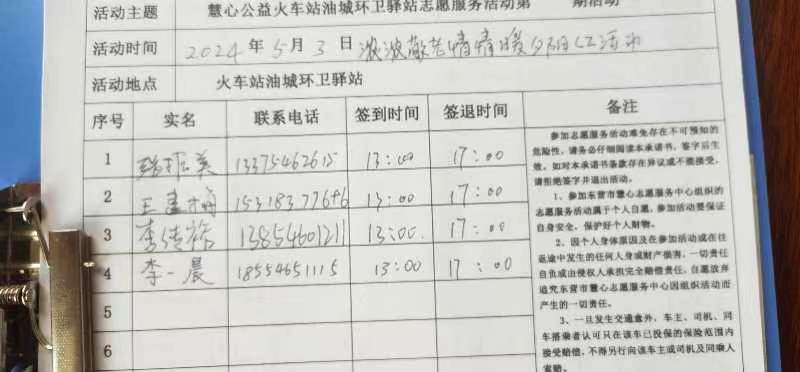 活动主题 慧心公益火车站油城环卫驿站志愿服务活动第 期活动
活动时间 2024年5月3日 浓浓敬老情 情暖夕阳红活动
活动地点 火车站油城环卫驿站
序号 实名 联系电话 签到时间 签退时间 备注
1 13375462615 13:00 17:00
2 王建 15318377646 13:00 17:00
3 李传裕 13854601211 13:00 17:00
4 李一晨 18554651115 13:00 17:00
5
6
参加志愿服务活动难免存在不可预知的
危险性，请务必仔细阅读本承诺书，签字后生
效。如对本承诺书条款存在异议或不能接受，
请拒绝签字并退出活动。
1、参加东营市慧心志愿服务中心组织的
志愿服务活动属于个人自愿，参加活动要保证
自身安全，保护好个人财物。
2、因个人身体原因及在参加活动或在往
返途中发生的任何人身或财产损害，一切责任
自负或由侵权人承担完全赔偿责任，自愿放弃
追究东营市慧心志愿服务中心因组织活动而
产生的一切责任。
3、一旦发生交通意外，车主、司机、同
车搭乘者认可只在该车已投保的保险范围内
接受赔偿，不得另行向该车主或司机及同乘人
索赔。